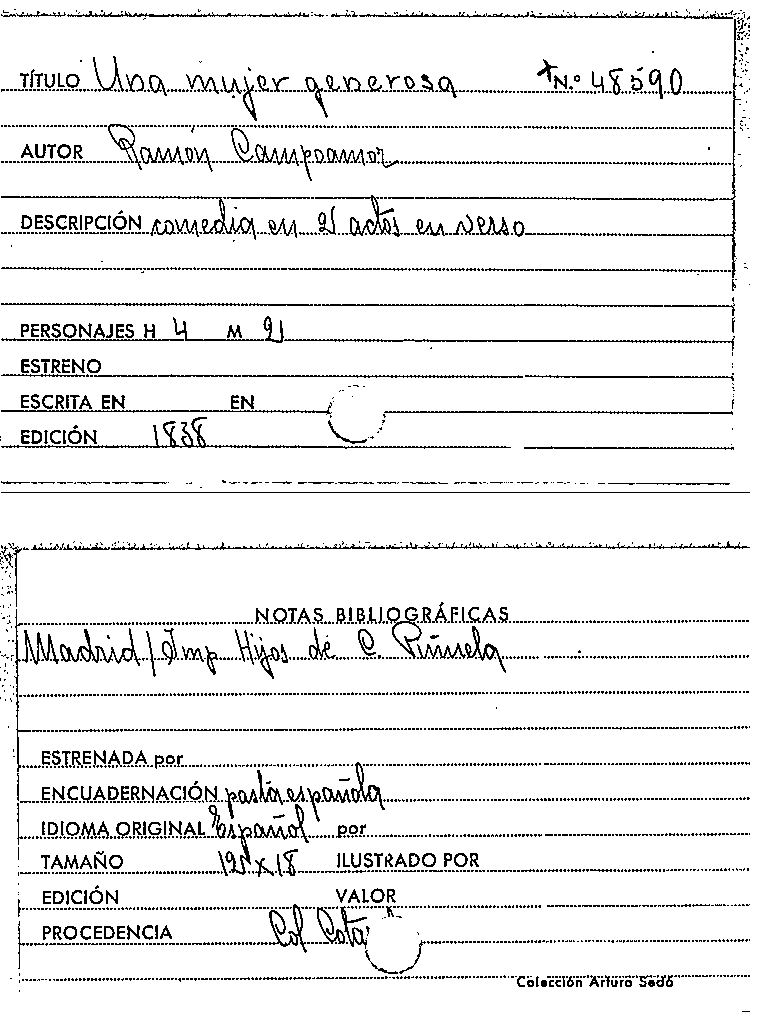 TÍTULO Una mujer generosa N.º 48590
AUTOR Ramón Campoamor
DESCRIPCIÓN comedia en 2 actos en verso
PERSONAJES H 4 M 2
ESTRENO
ESCRITA EN EN
EDICIÓN 1838
NOTAS BIBLIOGRÁFICAS
Madrid / Imp Hijos de C. Piñuela
ESTRENADA por
ENCUADERNACIÓN pasta española
IDIOMA ORIGINAL Español por
TAMAÑO 12 x 18 ILUSTRADO POR
EDICIÓN VALOR
PROCEDENCIA Col
Colección Arturo Sedó